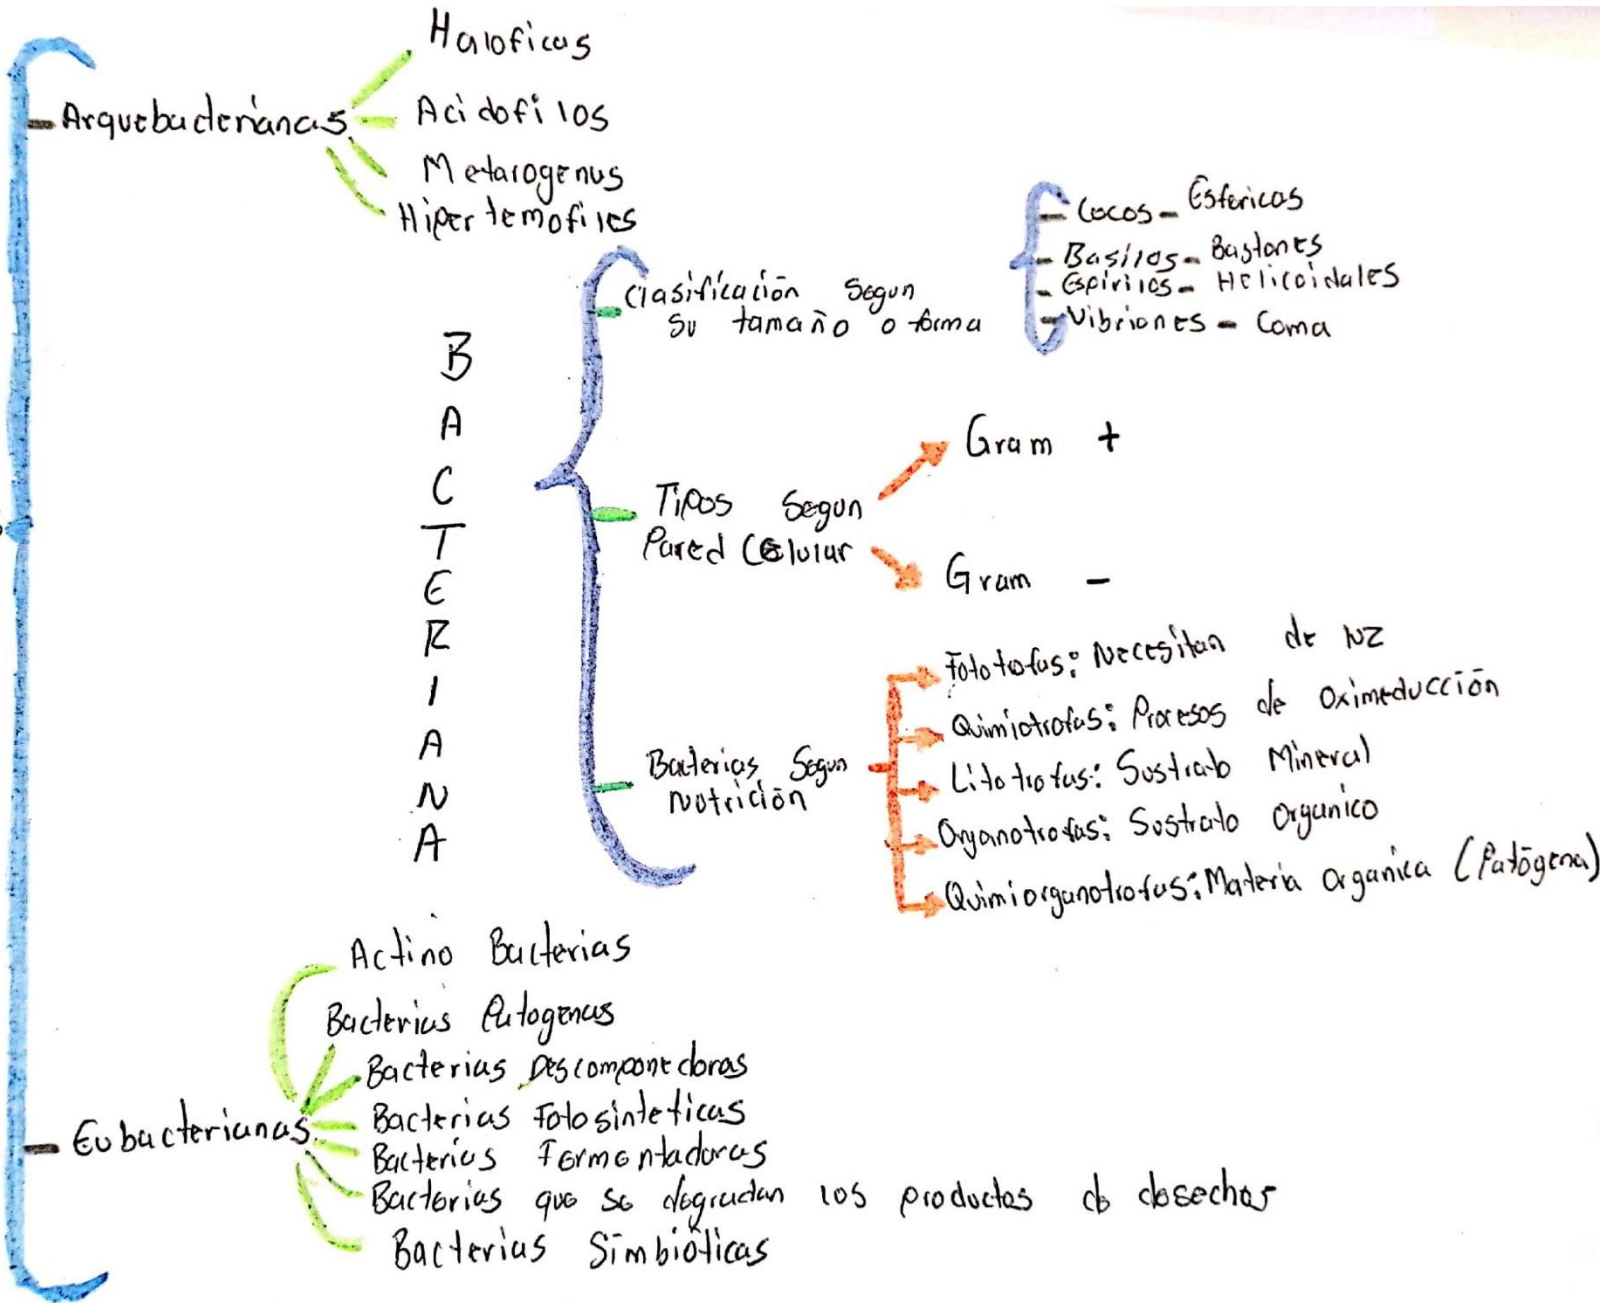 Haloficas
- Arquebacterianas
Acidofilos
Metarogenus
Hipertemofiles
BACTERIANA
Clasificación Segun
su tamaño o forma
- Cocos - Esfericos
- Basilos - Bastones
- Espirilos - Helicoidales
- Vibriones - Coma
Tipos Segun
Pared Celular
Gram +
Gram -
Bacterias Segun
Nutrición
Fototofas: Necesitan de
Quimiotrofas: Procesos de Oximeducción
Litotrofas: Sustrato Mineral
Organotrofas: Sustrato Organico
Quimiorganotrofas: Materia Organica (Patógena)
- Eubacterianas
Actino Bacterias
Bacterias Patogenas
Bacterias Descomponedoras
Bacterias Fotosinteticas
Bacterias Fermentadoras
Bacterias que se degradan los productos de desechos
Bacterias Simbióticas